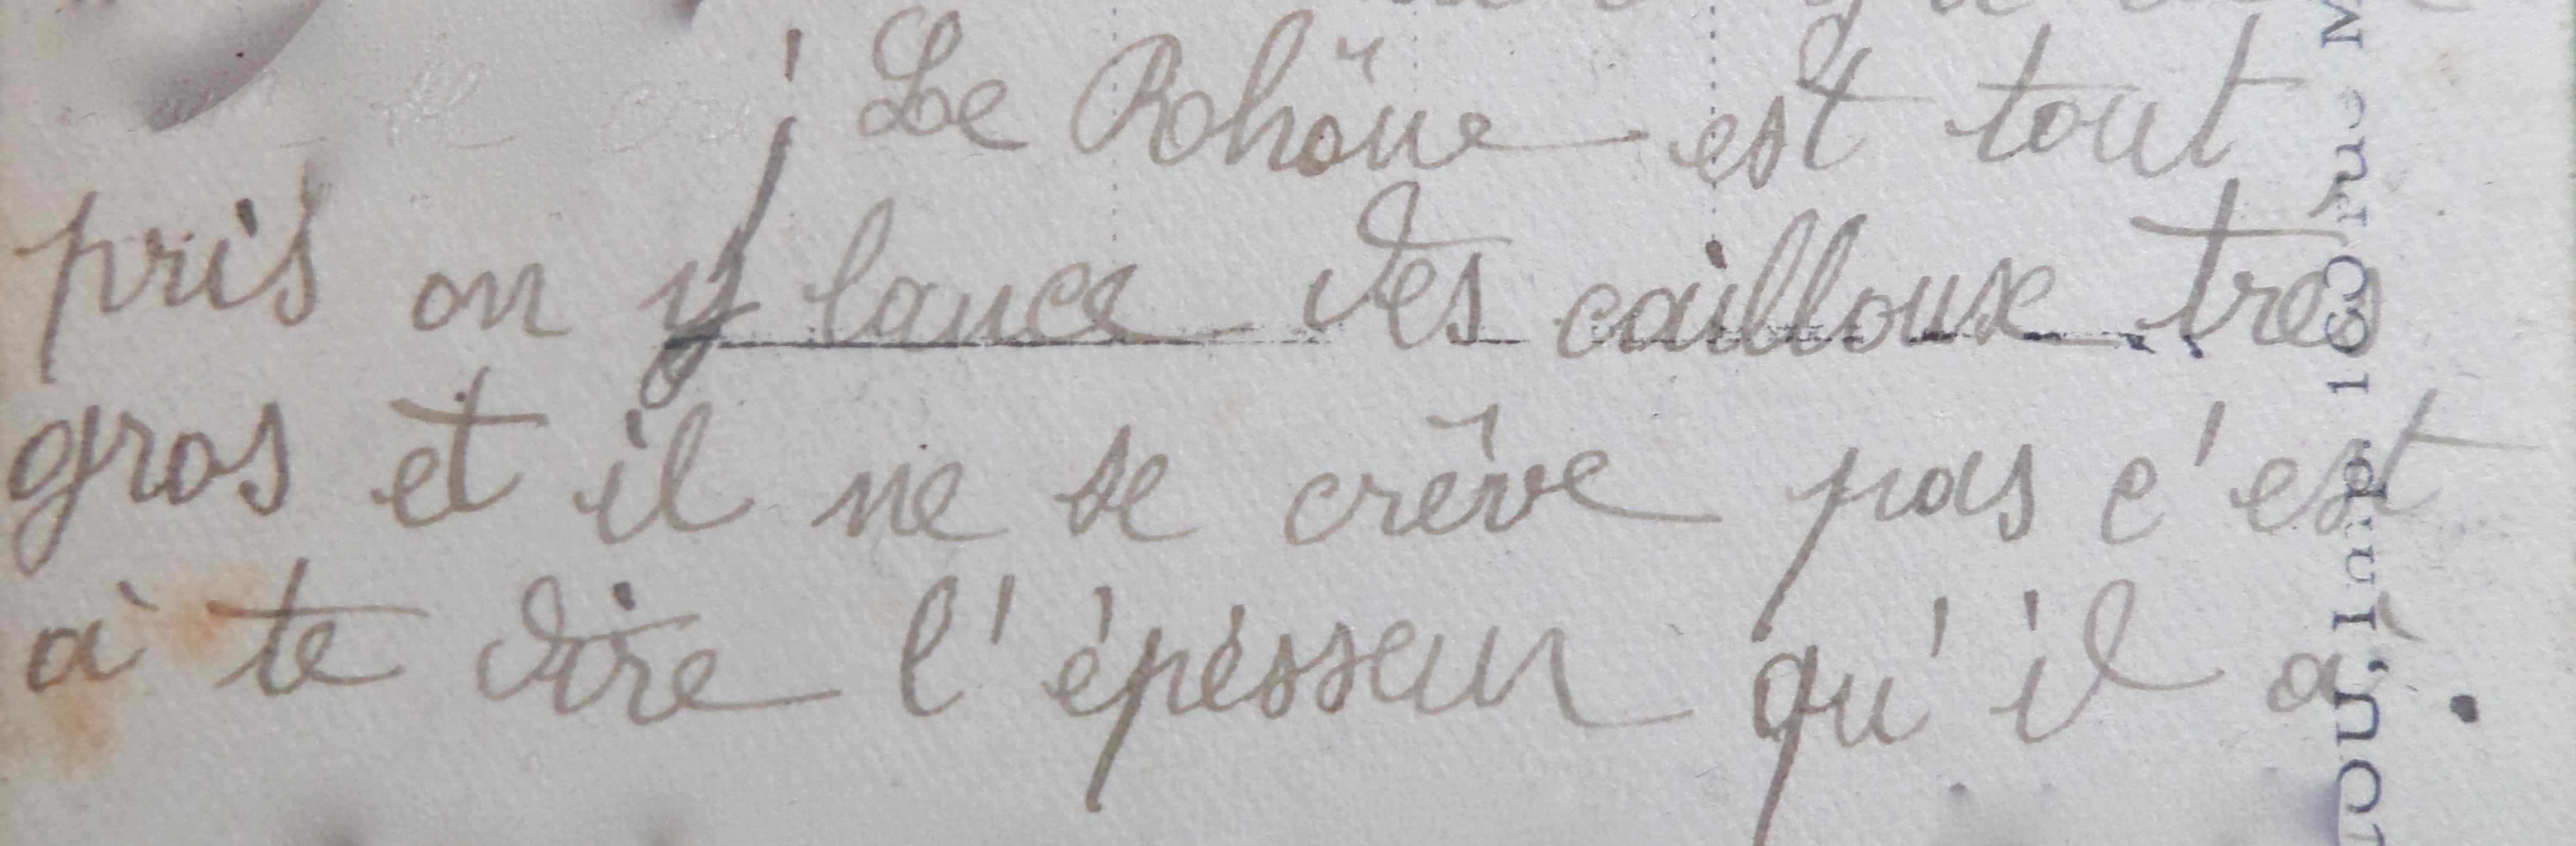 Le Rhône est tout
pris on y lance des cailloux tres
gros et il ne se crêve pas c'est
à te dire l'épésseur qu'il a.